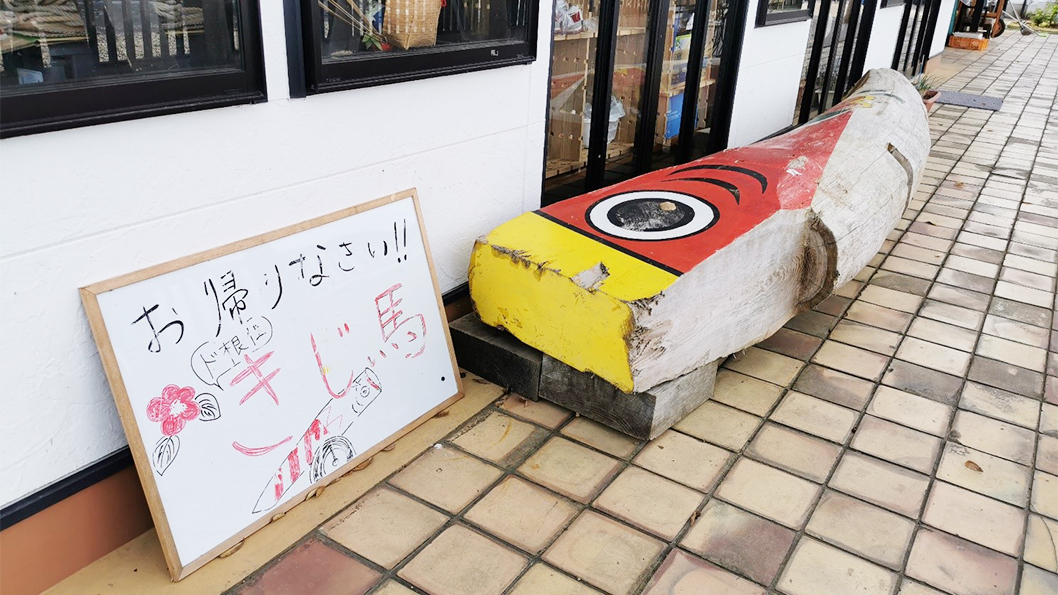 お帰りなさい!!
ド根性
きじぃ馬